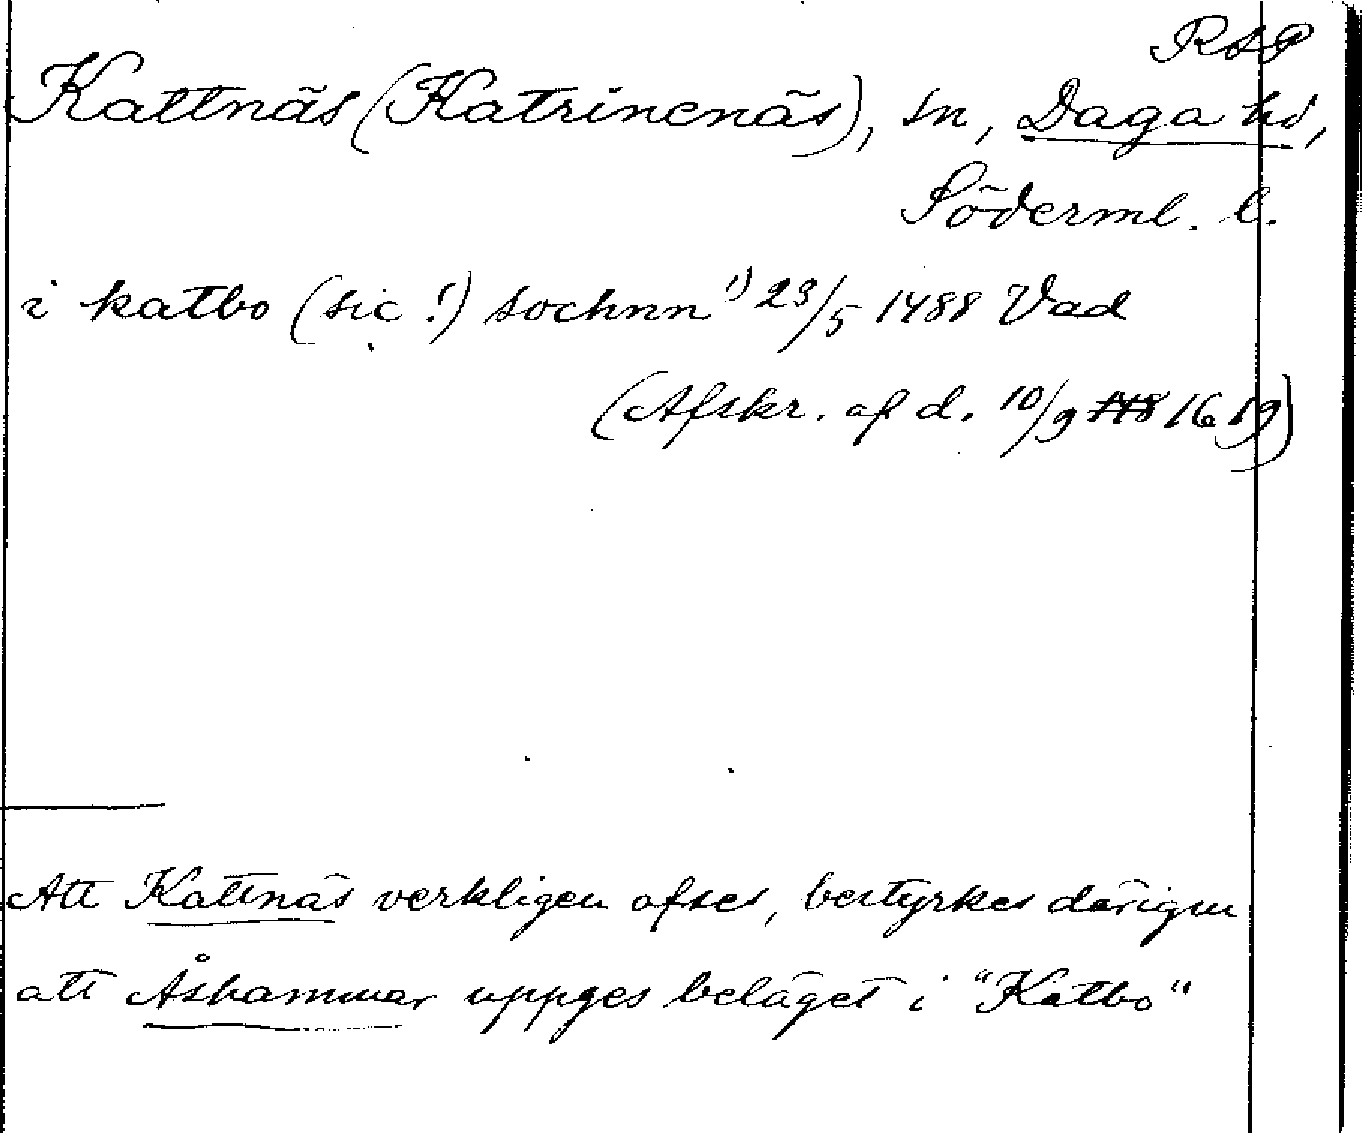 RAP
Kattnäs (Katrinenäs), sn, Daga hd,
Söderml. l.
i katbo (sic!) sochnn 1) 23/5 1488 Vad
(Afskr. af d. 10/9 148 1619)
Att Kattnäs verkligen afses, bestyrkes därigm
att Åshammar uppges beläget i "Katbo"